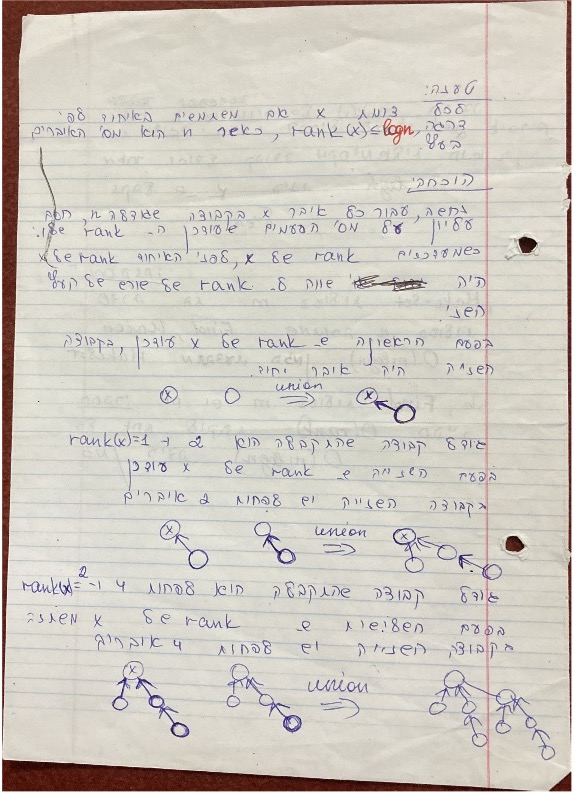 טענה:
לכל צומת x אם משתמשים באיחוד לפי
דרגה, rank(x) ≤ logn, כאשר n הוא מס' האיברים
בעץ.
הוכחה:
נחשב, עבור כל איבר x בקבוצה שגודלה n, חסם
עליון על מס' הפעמים שעודכן ה- rank שלו:
כשמעדכנים rank של x, לפני האיחוד rank של x
היה שווה ל- rank של שורש של העץ
השני.
בפעם הראשונה ש- rank של x עודכן, בקבוצה
השנייה היה איבר יחיד.
x union x
גודל קבוצה שהתקבלה הוא 2 ו- rank(x)=1
בפעם השנייה ש- rank של x עודכן
בקבוצה השנייה יש לפחות 2 איברים
x union x
גודל קבוצה שהתקבלה הוא לפחות 4 ו- rank(x)=2
בפעם השלישית ש- rank של x משתנה
בקבוצה השנייה יש לפחות 4 איברים
x union